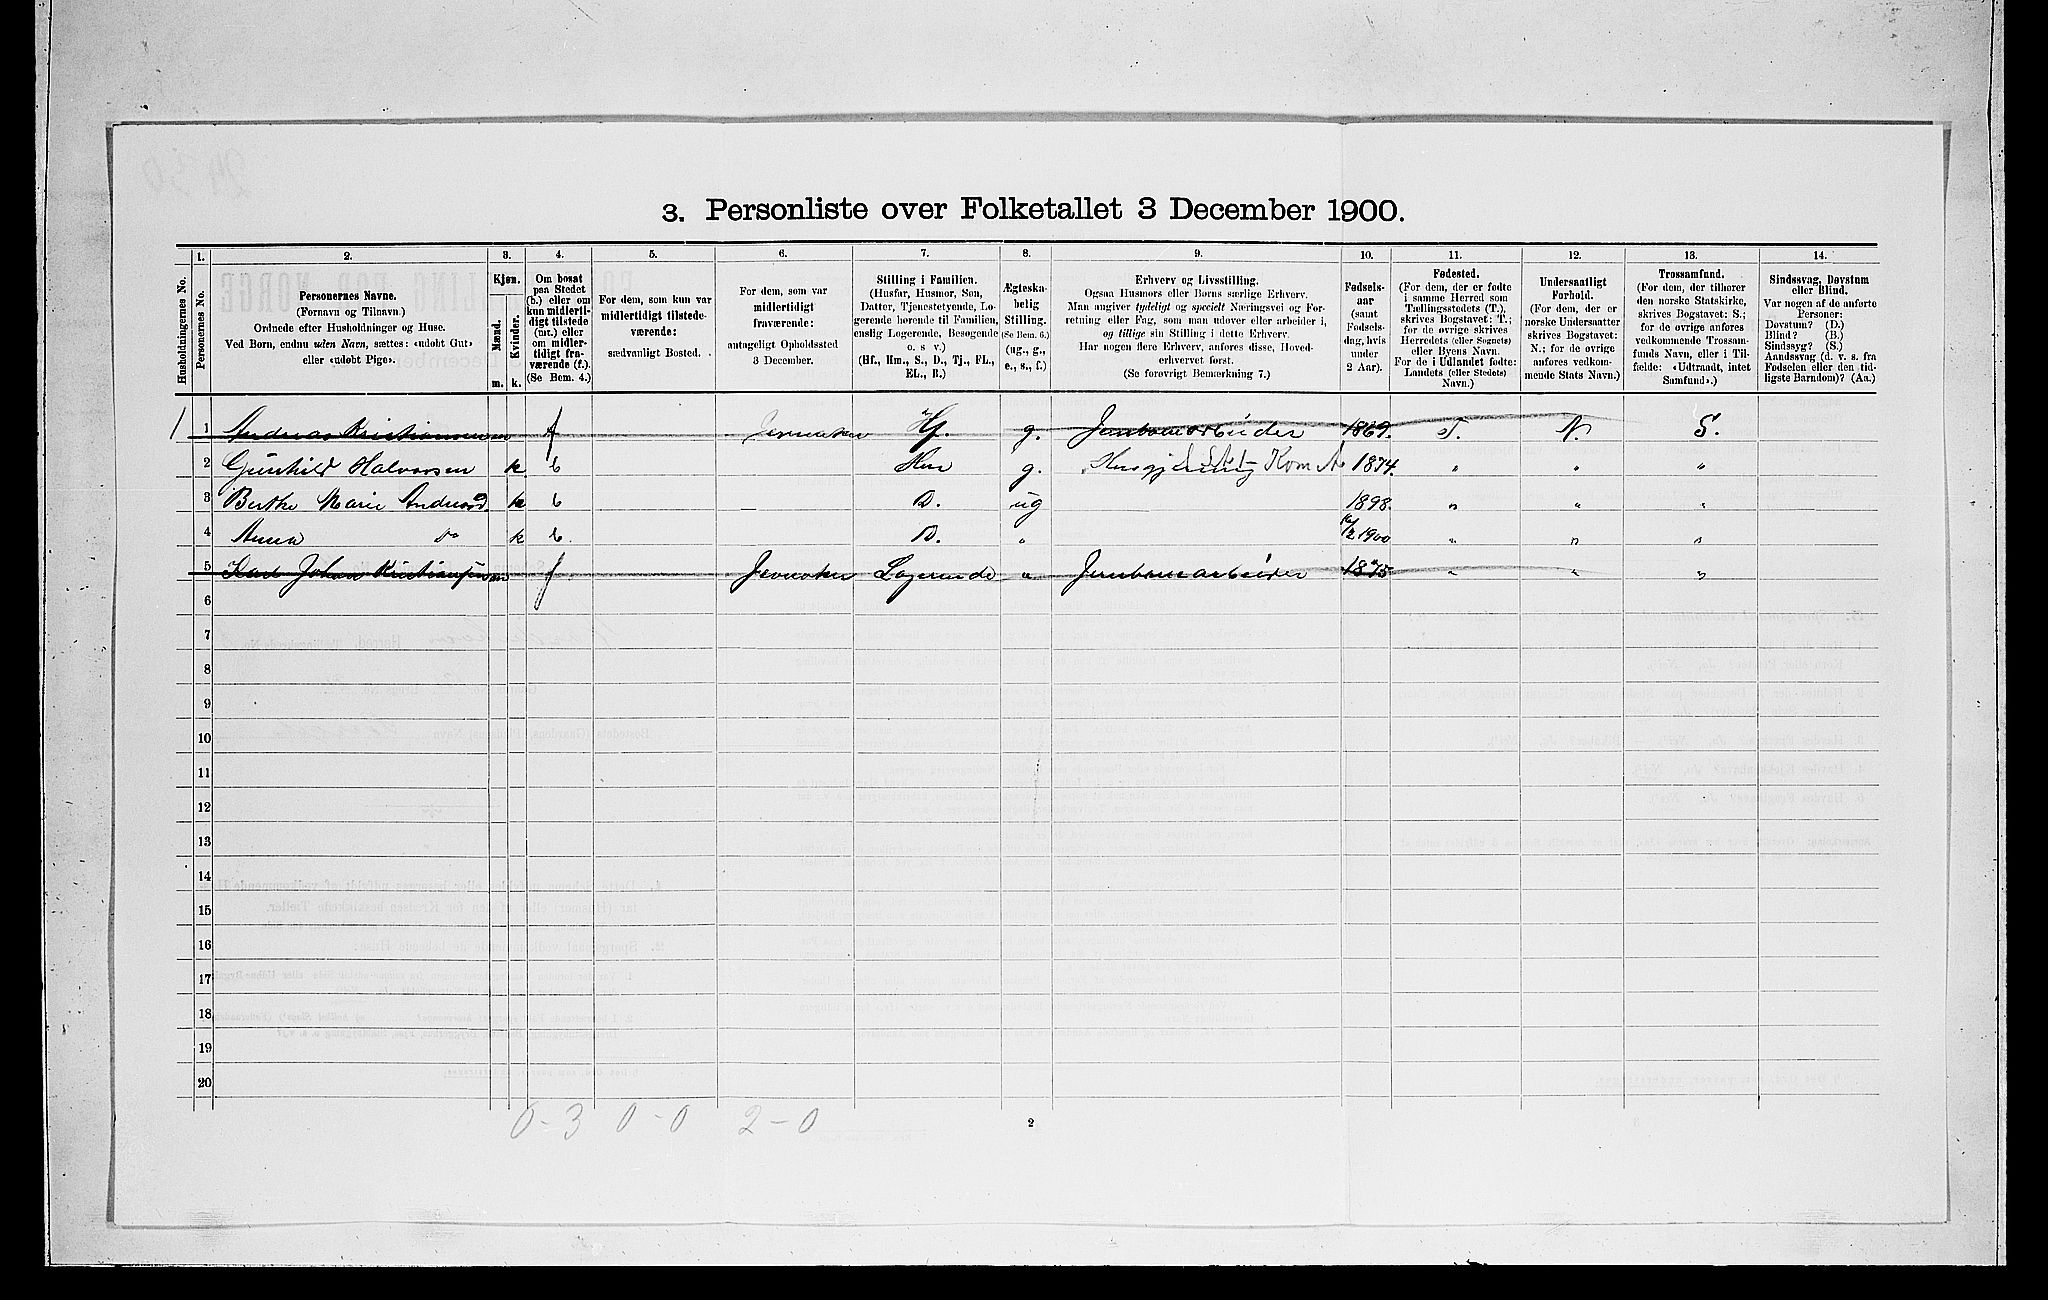 3. Personliste over Folketallet 3 December 1900.
Husholdningernes No.
1.
Personernes No.
2.
Personernes Navne.
(Fornavn og Tilnavn.)
Ordnede efter Husholdninger og Huse.
Ved Børn, endnu uden Navn, sættes: «udøbt Gut»
eller «udøbt Pige».
3.
Kjøn.
Mænd.
Kvinder.
m. k.
4.
Om bosat
paa Stedet
(b.) eller om
kun midlerti-
digt tilstede
(mt.) eller
om midler-
tidigt fra-
værende (f.).
(Se Bem. 4.)
5.
For dem, som kun var
midlertidigt tilstede-
værende:
sædvanligt Bosted.
6.
For dem, som var
midlertidigt
fraværende:
antageligt Opholdssted
3 December.
7.
Stilling i Familien.
(Husfar, Husmor, Søn,
Datter, Tjenestetyende, Lo-
gerende hørende til Familien,
enslig Logerende, Besøgende
o. s v.)
(Hf., Hm., S., D., Tj., FL.,
EL., B.)
8.
Ægteska-
belig
Stilling.
(Se Bem. 6.)
(ug., g.,
e., s., f.)
9.
Erhverv og Livsstilling.
Ogsaa Husmors eller Børns særlige Erhverv.
Man angiver tydeligt og specielt Næringsvei og For-
retning eller Fag, som man udøver eller arbeider i,
og tillige sin Stilling i dette Erhverv.
Har nogen flere Erhverv, anføres disse, Hoved-
erhvervet først.
(Se forøvrigt Bemærkning 7.)
10.
Fødsels-
aar
(samt
Fødsels-
dag, hvis
under
2 Aar).
11.
Fødested.
(For dem, der er fødte
i samme Herred som
Tællingsstedets (T.),
skrives Bogstavet: T.;
for de øvrige skrives
Herredets (eller Sognets)
eller Byens Navn.
For de i Udlandet fødte:
Landets (eller Stedets)
Navn.)
12.
Undersaatligt
Forhold.
(For dem, der er
norske Undersaatter
skrives Bogstavet:
N.; for de øvrige
anføres vedkom-
mende Stats Navn.)
13.
Trossamfund.
(For dem, der tilhører
den norske Statskirke,
skrives Bogstavet: S.;
for de øvrige anføres
vedkommende Trossam-
funds Navn, eller i Til-
fælde: «Udtraadt, intet
Samfund».)
14.
Sindssvag, Døvstum
eller Blind.
Var nogen af de anførte
Personer:
Døvstum? (D.)
Blind? (B.)
Sindssyg? (S.)
Aandssvag (d. v. s. fra
Fødselen eller den tid-
ligste Barndom)? (Aa.)
1 1 Andreas Kristiansen m f Jevnaker Hf. g. Jernbanearbeider 1869. T. N. S.
2 Gunhild Halvorsen k b Hm g. Husgjerning Kom A 1874. " " "
3 Berthe Marie Andreasd. k b D. ug 1898. " " "
4 Anna do k b. D. " 12/2 1900 " " "
5 Karl Johan Kristiansen m f Jevnaker Logerende " Jernbanearbeider 1875 " " "
6
7
8
9
10
11
12
13
14
15
16
17
18
19
20
0-3 0-0 2-0
2